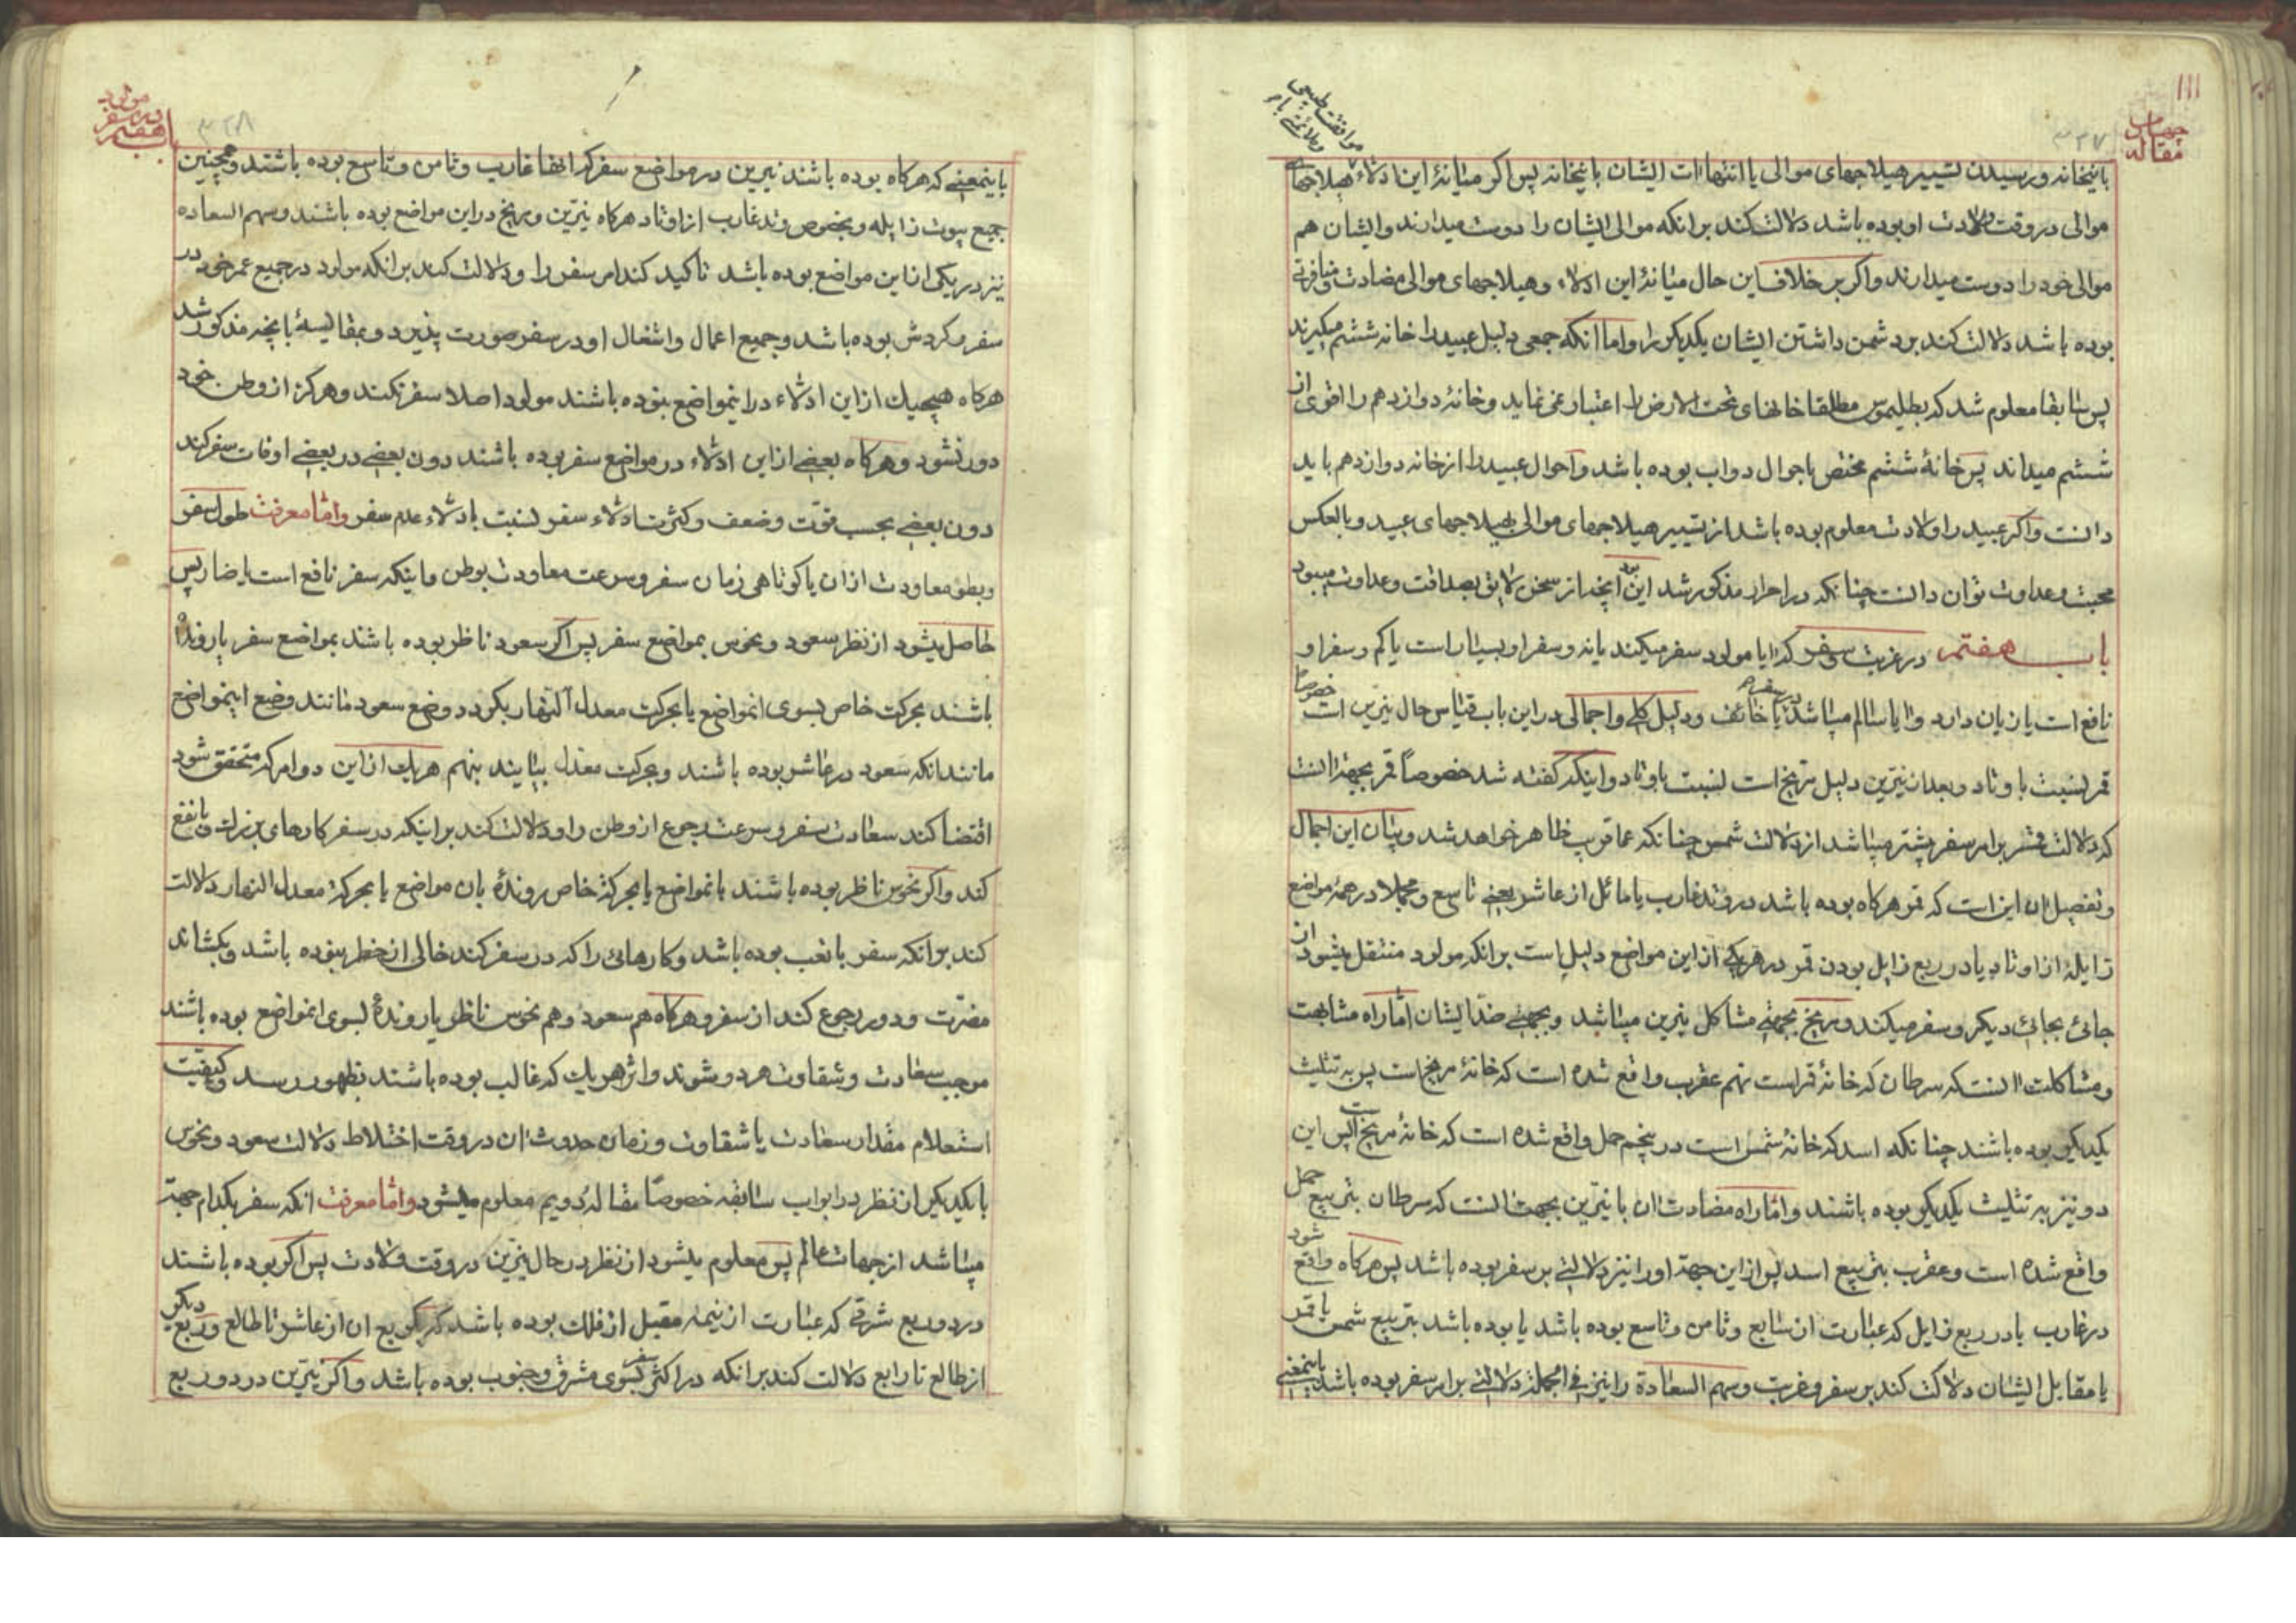 ۱۱۱
چهارم
مقاله
۳۲۷
موافقت طبیعی
باینخانه و رسیدن تسییر هیلاجهای موالی یا انتهاات ایشان باینخانه پس اگر میانهٔ این ادلاء هیلاجهای
موالی در وقت ولادت او بوده باشد دلالت کند برانکه موالی ایشان را دوست میدارند و ایشان هم
موالی خود را دوست میدارند و اگر بر خلاف این حال میانهٔ این ادلاء و هیلاجهای موالی مضادت و منافرتی
بوده باشد دلالت کند بر دشمن داشتن ایشان یکدیکر را و اما انکه جمعی دلیل عبید را خانه ششم میکیرند
پس سابقا معلوم شد که بطلیموس مطلقا خانهای تحت الارض را اعتبار نمی نماید و خانهٔ دوازدهم را اقوی از
ششم میداند پس خانهٔ ششم مختص باحوال دواب بوده باشد و احوال عبید را از خانه دوازدهم باید
دانست و اکر عبید را ولادت معلوم بوده باشد از تسییر هیلاجهای موالی بهیلاجهای عبید و بالعکس
محبت و عداوت توان دانست چنانکه در احرار مذکور شد این بود انچه از سخن لایق بصداقت و عداوت میبود
باب هفتم در غربت و سفر که ایا مولود سفر میکند یا نه و سفر او بسیار است یا کم و سفر او
نافع است یا زیان دارد و ایا سالم میباشد در سفرها یا خائف و دلیل کلی و اجمالی در این باب قیاس حال نیرین است خصوصا
قمر نسبت باوتاد و بعد از نیرین دلیل مریخ است نسبت باوتاد و اینکه کفته شد خصوصاً قمر بجهة انست
که دلالت قمر بر امر سفر بیشتر میباشد از دلالت شمس چنانکه عما قریب ظاهر خواهد شد و بیان این اجمال
و تفصیل ان این است که قمر هرکاه بوده باشد در وتد غارب یا مائل از عاشر یعنی تاسع و مجملا در همهٔ مواضع
زایلهٔ از اوتاد یا در ربع زایل بودن قمر در هریکی از این مواضع دلیل است برانکه مولود منتقل میشود از
جائی بجائی دیکر و سفر میکند و مریخ بجهتی مشاکل نیرین میباشد و بجهتی ضد ایشان اما راه مشابهت
و مشاکلت انست که سرطان که خانهٔ قمر است نهم عقرب واقع شده است که خانهٔ مریخ است پس به تثلیث
یکدیکر بوده باشند چنانکه اسد که خانهٔ شمس است در پنجم حمل واقع شده است که خانهٔ مریخ است پس این
دو نیز به تثلیث یکدیکر بوده باشند و اما راه مضادت ان با نیرین بجهت انست که سرطان بتربیع حمل
واقع شده است و عقرب بتربیع اسد پس از این جهة او را نیز دلالتی بر سفر بوده باشد پس هرکاه واقع شود
در غارب یا در ربع زایل که عبارت از سابع و ثامن و تاسع بوده باشد یا بوده باشد بتربیع شمس یا قمر
یا مقابل ایشان دلالت کند بر سفر و غربت و سهم السعادة را نیز فی الجمله دلالتی بر امر سفر بوده باشد باینمعنی
مولود
در سفر
باب هفتم
۳۲۸
باینمعنی که هرکاه بوده باشند نیرین در مواضع سفر که انها غارب و ثامن و تاسع بوده باشند و همچنین
جمیع بیوت زایله و بخصوص وتد غارب از اوتاد هرکاه نیرین و مریخ در این مواضع بوده باشند و سهم السعاده
نیز در یکی از این مواضع بوده باشد تاکید کند امر سفر را و دلالت کند برانکه مولود در جمیع عمر خود در
سفر و کردش بوده باشد و جمیع اعمال و اشغال او در سفر صورت پذیرد و بمقایسهٔ بانچه مذکور شد
هرکاه هیچیک از این ادلاء در اینمواضع نبوده باشند مولود اصلا سفر نکند و هرکز از وطن خود
دور نشود و هرکاه بعضی از این ادلاء در مواضع سفر بوده باشند دون بعضی در بعضی اوقات سفر کند
دون بعضی بحسب قوت و ضعف و کثرت ادلاء سفر نسبت بادلاء عدم سفر و اما معرفت طول سفر
و بطوء معاودت ازان یا کوتاهی زمان سفر و سرعت معاودت بوطن و اینکه سفر نافع است یا ضار پس
حاصل میشود از نظر سعود و نحوس بمواضع سفر پس اکر سعود ناظر بوده باشند بمواضع سفر یا روندهٔ
باشند بحرکت خاص بسوی انمواضع یا بحرکت معدل النهار بکردد وضع سعود مانند وضع اینمواضع
مانند انکه سعود در عاشر بوده باشند و بحرکت معدل بیایند بنهم هریک از این دو امر که متحقق شود
اقتضا کند سعادت سفر و سرعت رجوع از وطن را و دلالت کند بر اینکه در سفر کارهای بزرک و بانفع
کند و اکر نحوس ناظر بوده باشند بانمواضع یا بحرکة خاص روندهٔ بان مواضع یا بحرکة معدل النهار دلالت
کند برانکه سفر با تعب بوده باشد و کارهائی را که در سفر کند خالی از خطر نبوده باشد و بکشاند
مضرت و دور رجوع کند از سفر و هرکاه هم سعود و هم نحوس ناظر یا روندهٔ بسوی انمواضع بوده باشند
موجب سعادت و شقاوت هر دو شوند و اثر هریک که غالب بوده باشند بظهور رسد و کیفیت
استعلام مقدار سعادت یا شقاوت و زمان حدوث ان در وقت اختلاط دلالت سعود و نحوس
با یکدیکر از نظر در ابواب سابقه خصوصًا مقالهٔ دویم معلوم میشود و اما معرفت انکه سفر بکدام جهة
میباشد از جهات عالم پس معلوم میشود از نظر در حال نیرین در وقت ولادت پس اکر بوده باشند
در دو ربع شرقی که عبارت از نیمهٔ مقبل از فلک بوده باشد که یکربع ان از عاشر تا طالع و ربع دیکر
از طالع تا رابع دلالت کند برانکه در اکثر سفر بسوی مشرق و جنوب بوده باشد و اکر نیرین در دو ربع